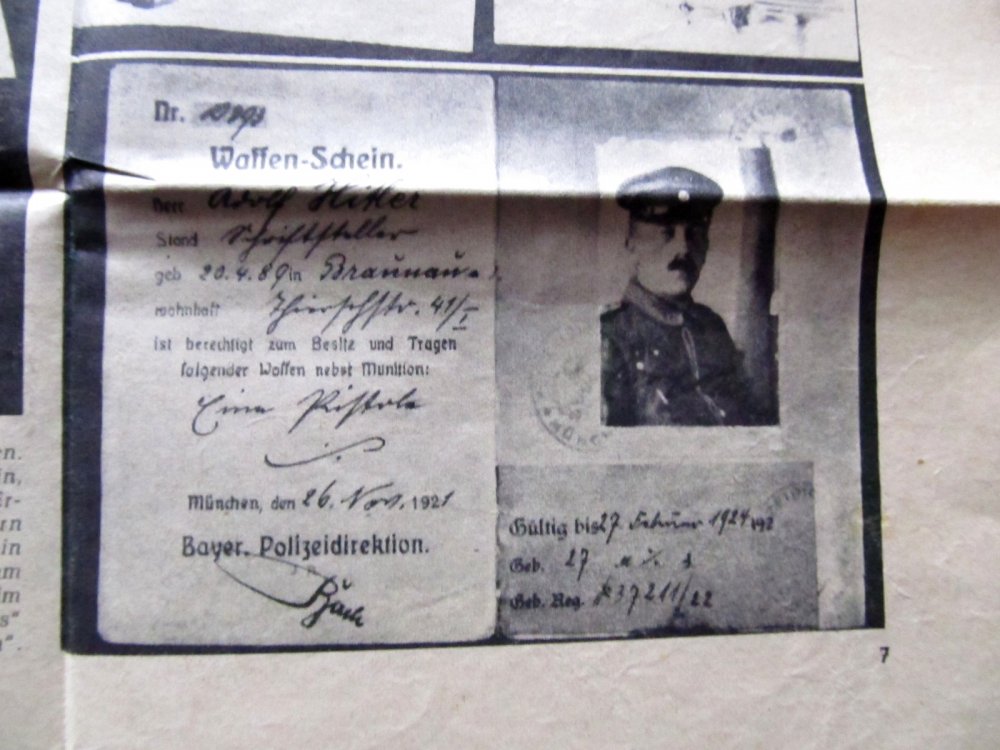 Nr.
Waffen-Schein.
Herr Adolf Hitler
Stand Schriftsteller
geb 20.4.89 in Braunau
wohnhaft Thierschstr. 41/I
ist berechtigt zum Besitz und Tragen
folgender Waffen nebst Munition:
Eine Pistole
München, den 26. Nov. 1921
Bayer. Polizeidirektion.
Gültig bis 27 Februar 1924 192
Geb. 27
Geb. Reg. 37211/22
7
en.
in,
Er-
rn
in
m
Im
s"
".